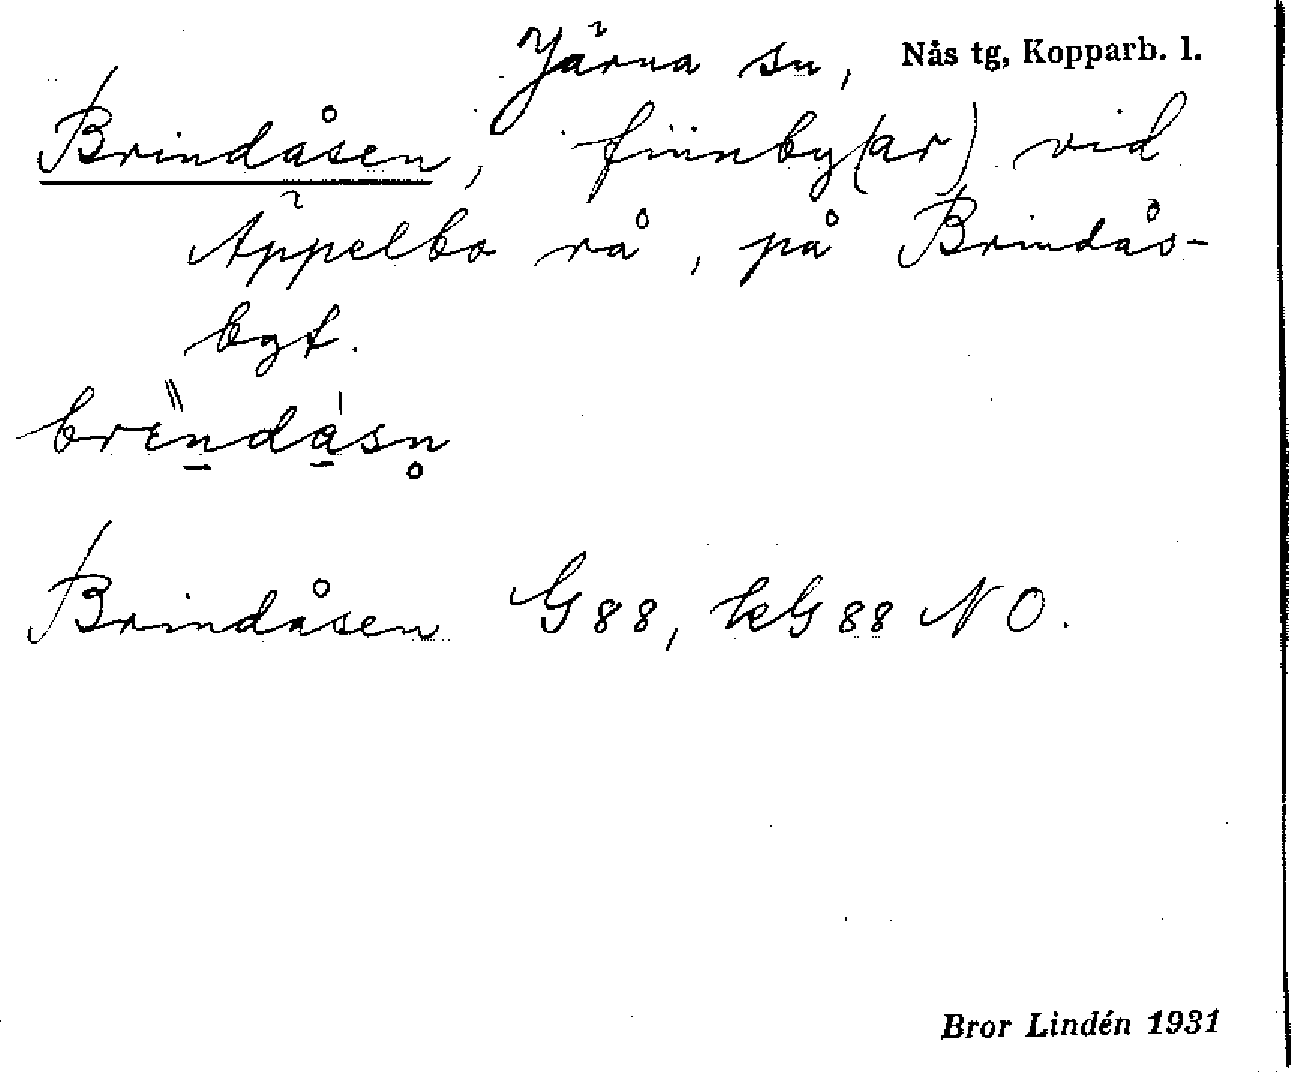 Järna sn, Nås tg, Kopparb. l.
Brindåsen, finnby(ar) vid
Äppelbo rå, på Brindås-
bgt.
brindåsn
Brindåsen G88, kG88 NO.
Bror Lindén 1931